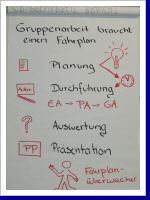 Gruppenarbeit braucht
einen Fahrplan
Planung
Durchführung
EA → PA → GA
?
Auswertung
PP
Präsentation
Fahrplan-
überwacher